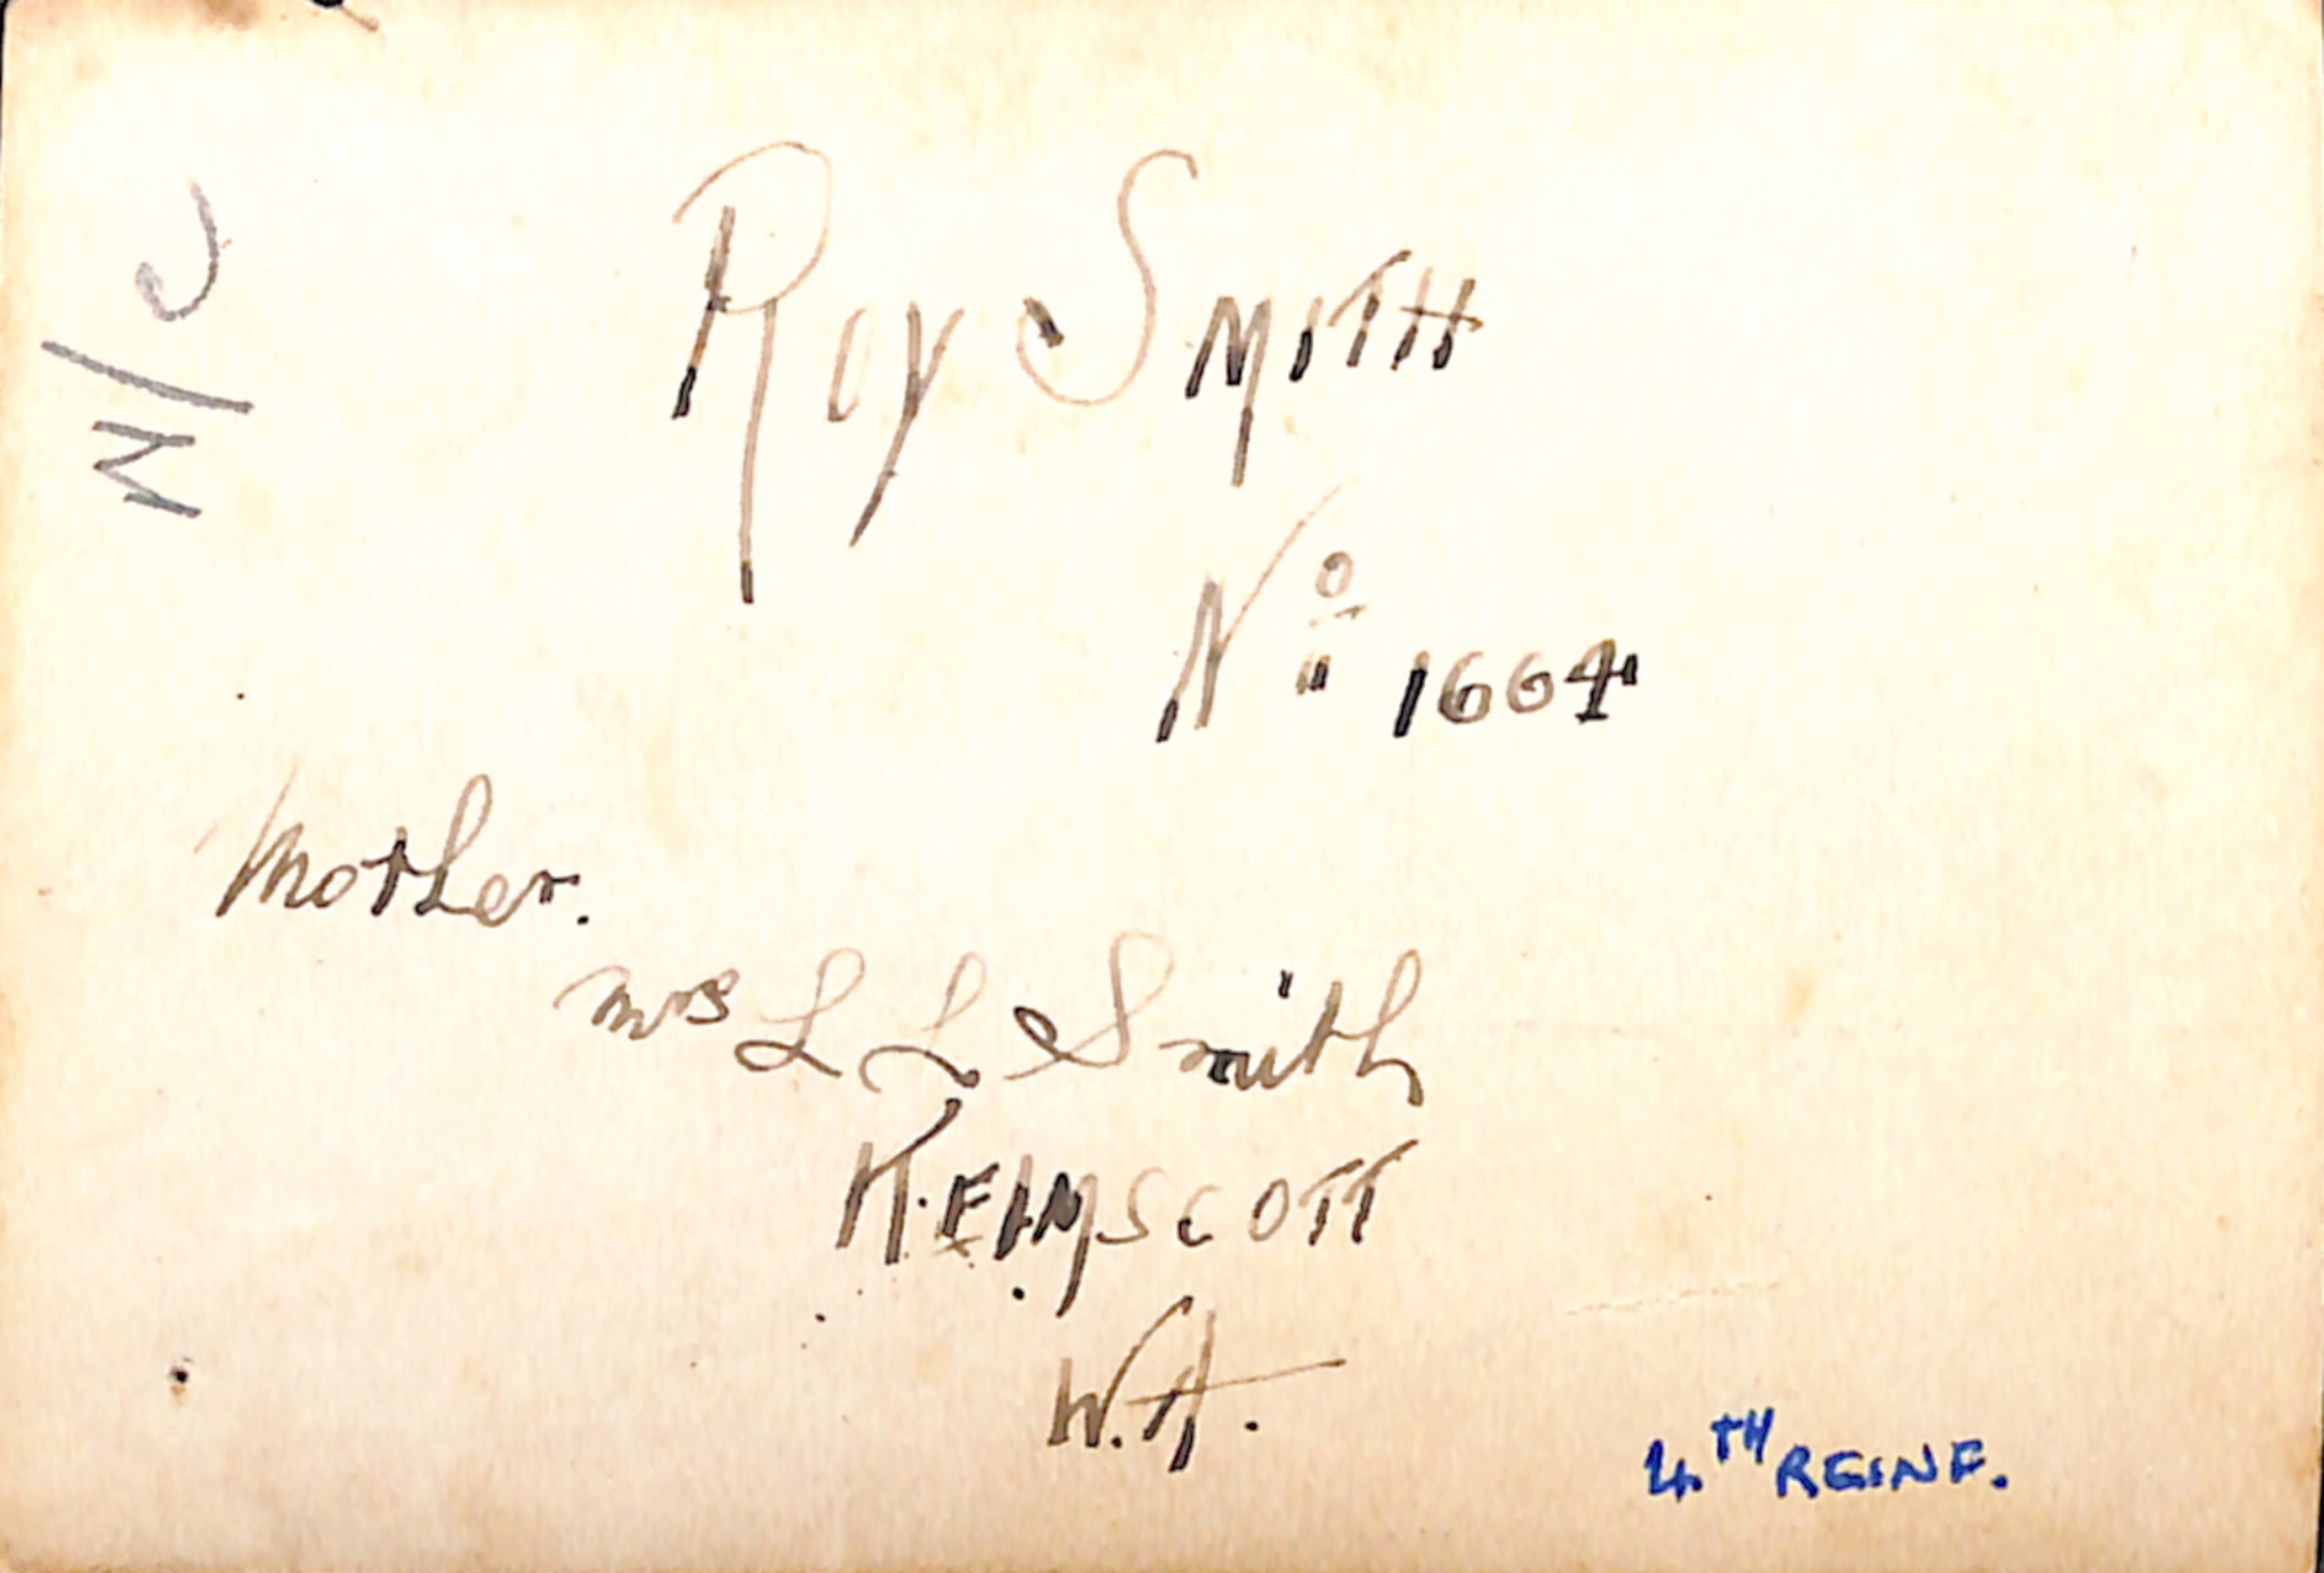 N/C
Roy SMITH
Nº 1664
Mother.
Mrs L L Smith
KELMSCOTT
W.A.
4TH REINF.